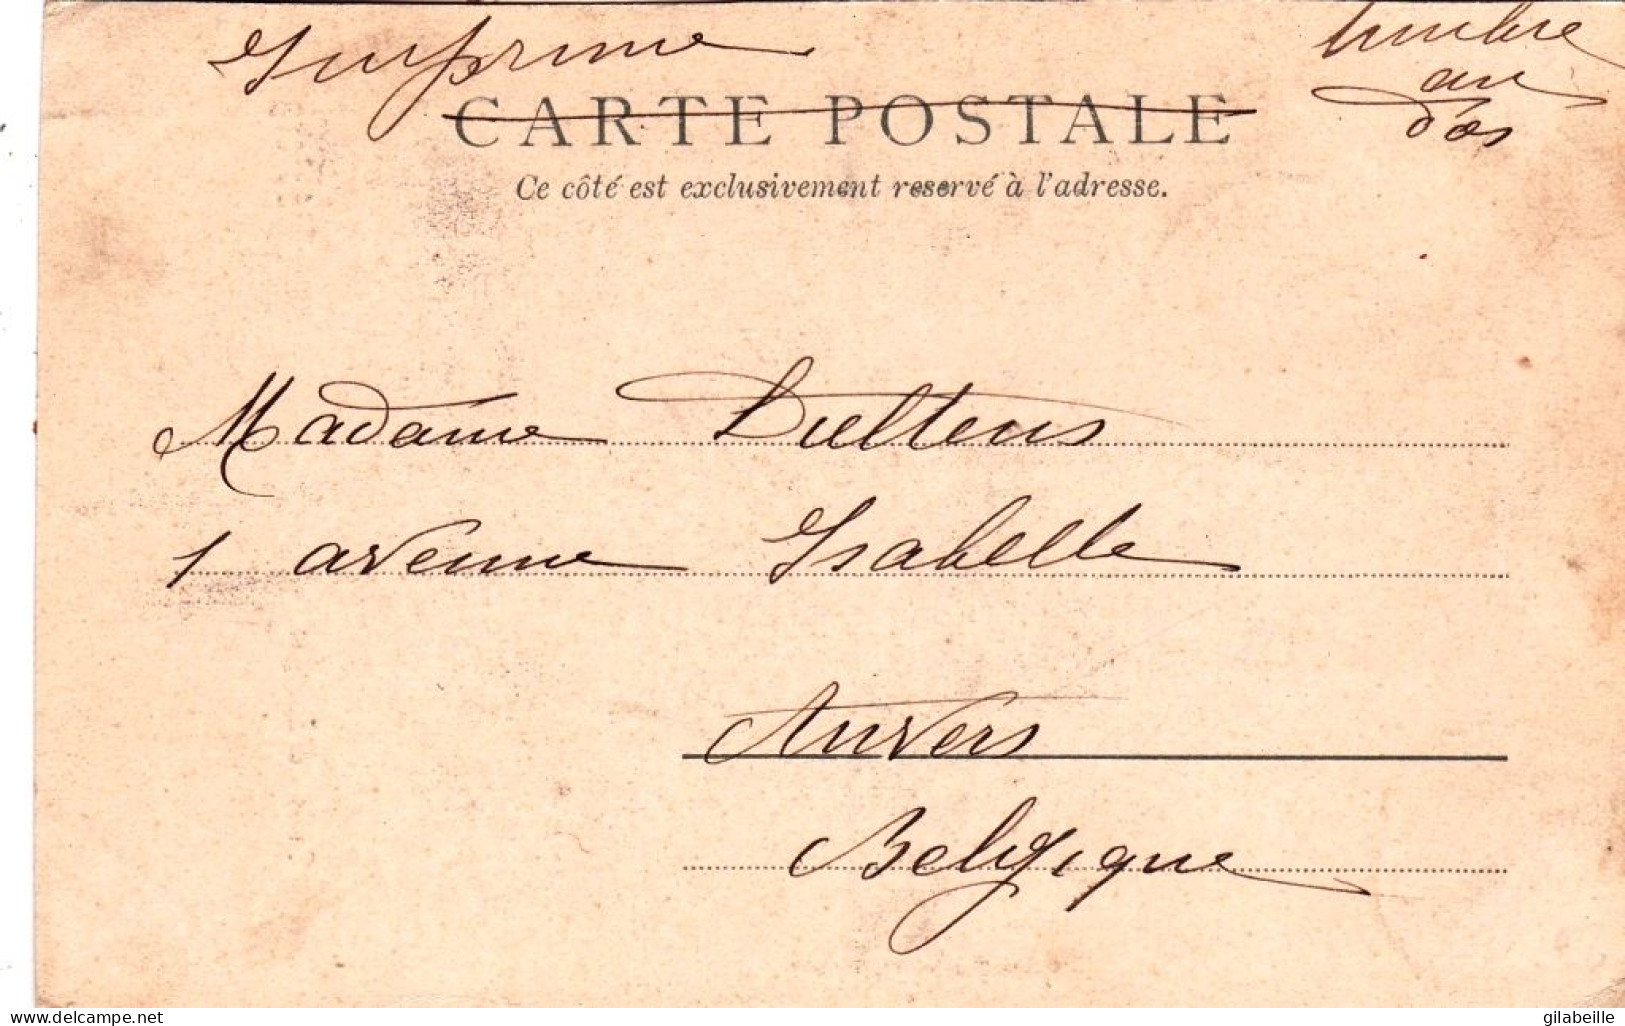 Imprime
timbre
au
dos
CARTE POSTALE
Ce côté est exclusivement reservé à l'adresse.
Madame Dueltens
1 avenue Isabelle
Anvers
Belgique
delcampe.net
gilabeille